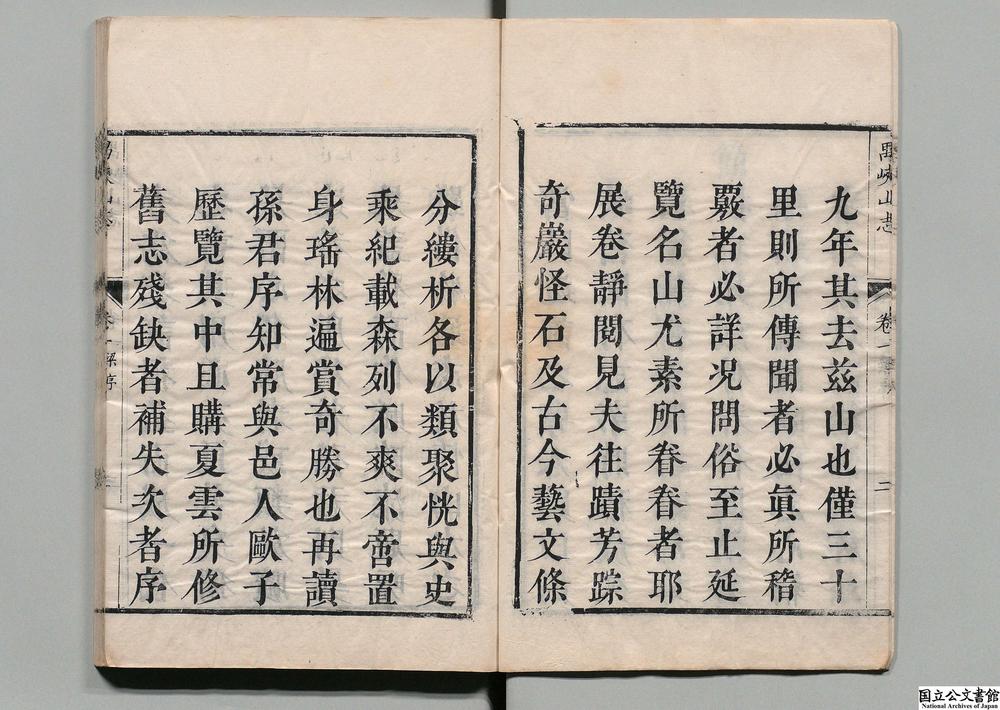 禺峽山志
卷一
二
九年其去茲山也僅三十
里則所傳聞者必眞所稽
覈者必詳况問俗至止延
覽名山尤素所眷眷者耶
展卷靜閱見夫往蹟芳踪
奇巖怪石及古今藝文條
分縷析各以類聚恍與史
乘紀載森列不爽不啻置
身瑤林遍賞奇勝也再讀
孫君序知常與邑人歐子
歷覽其中且購夏雲所修
舊志殘缺者補失次者序
國立公文書館
National Archives of Japan